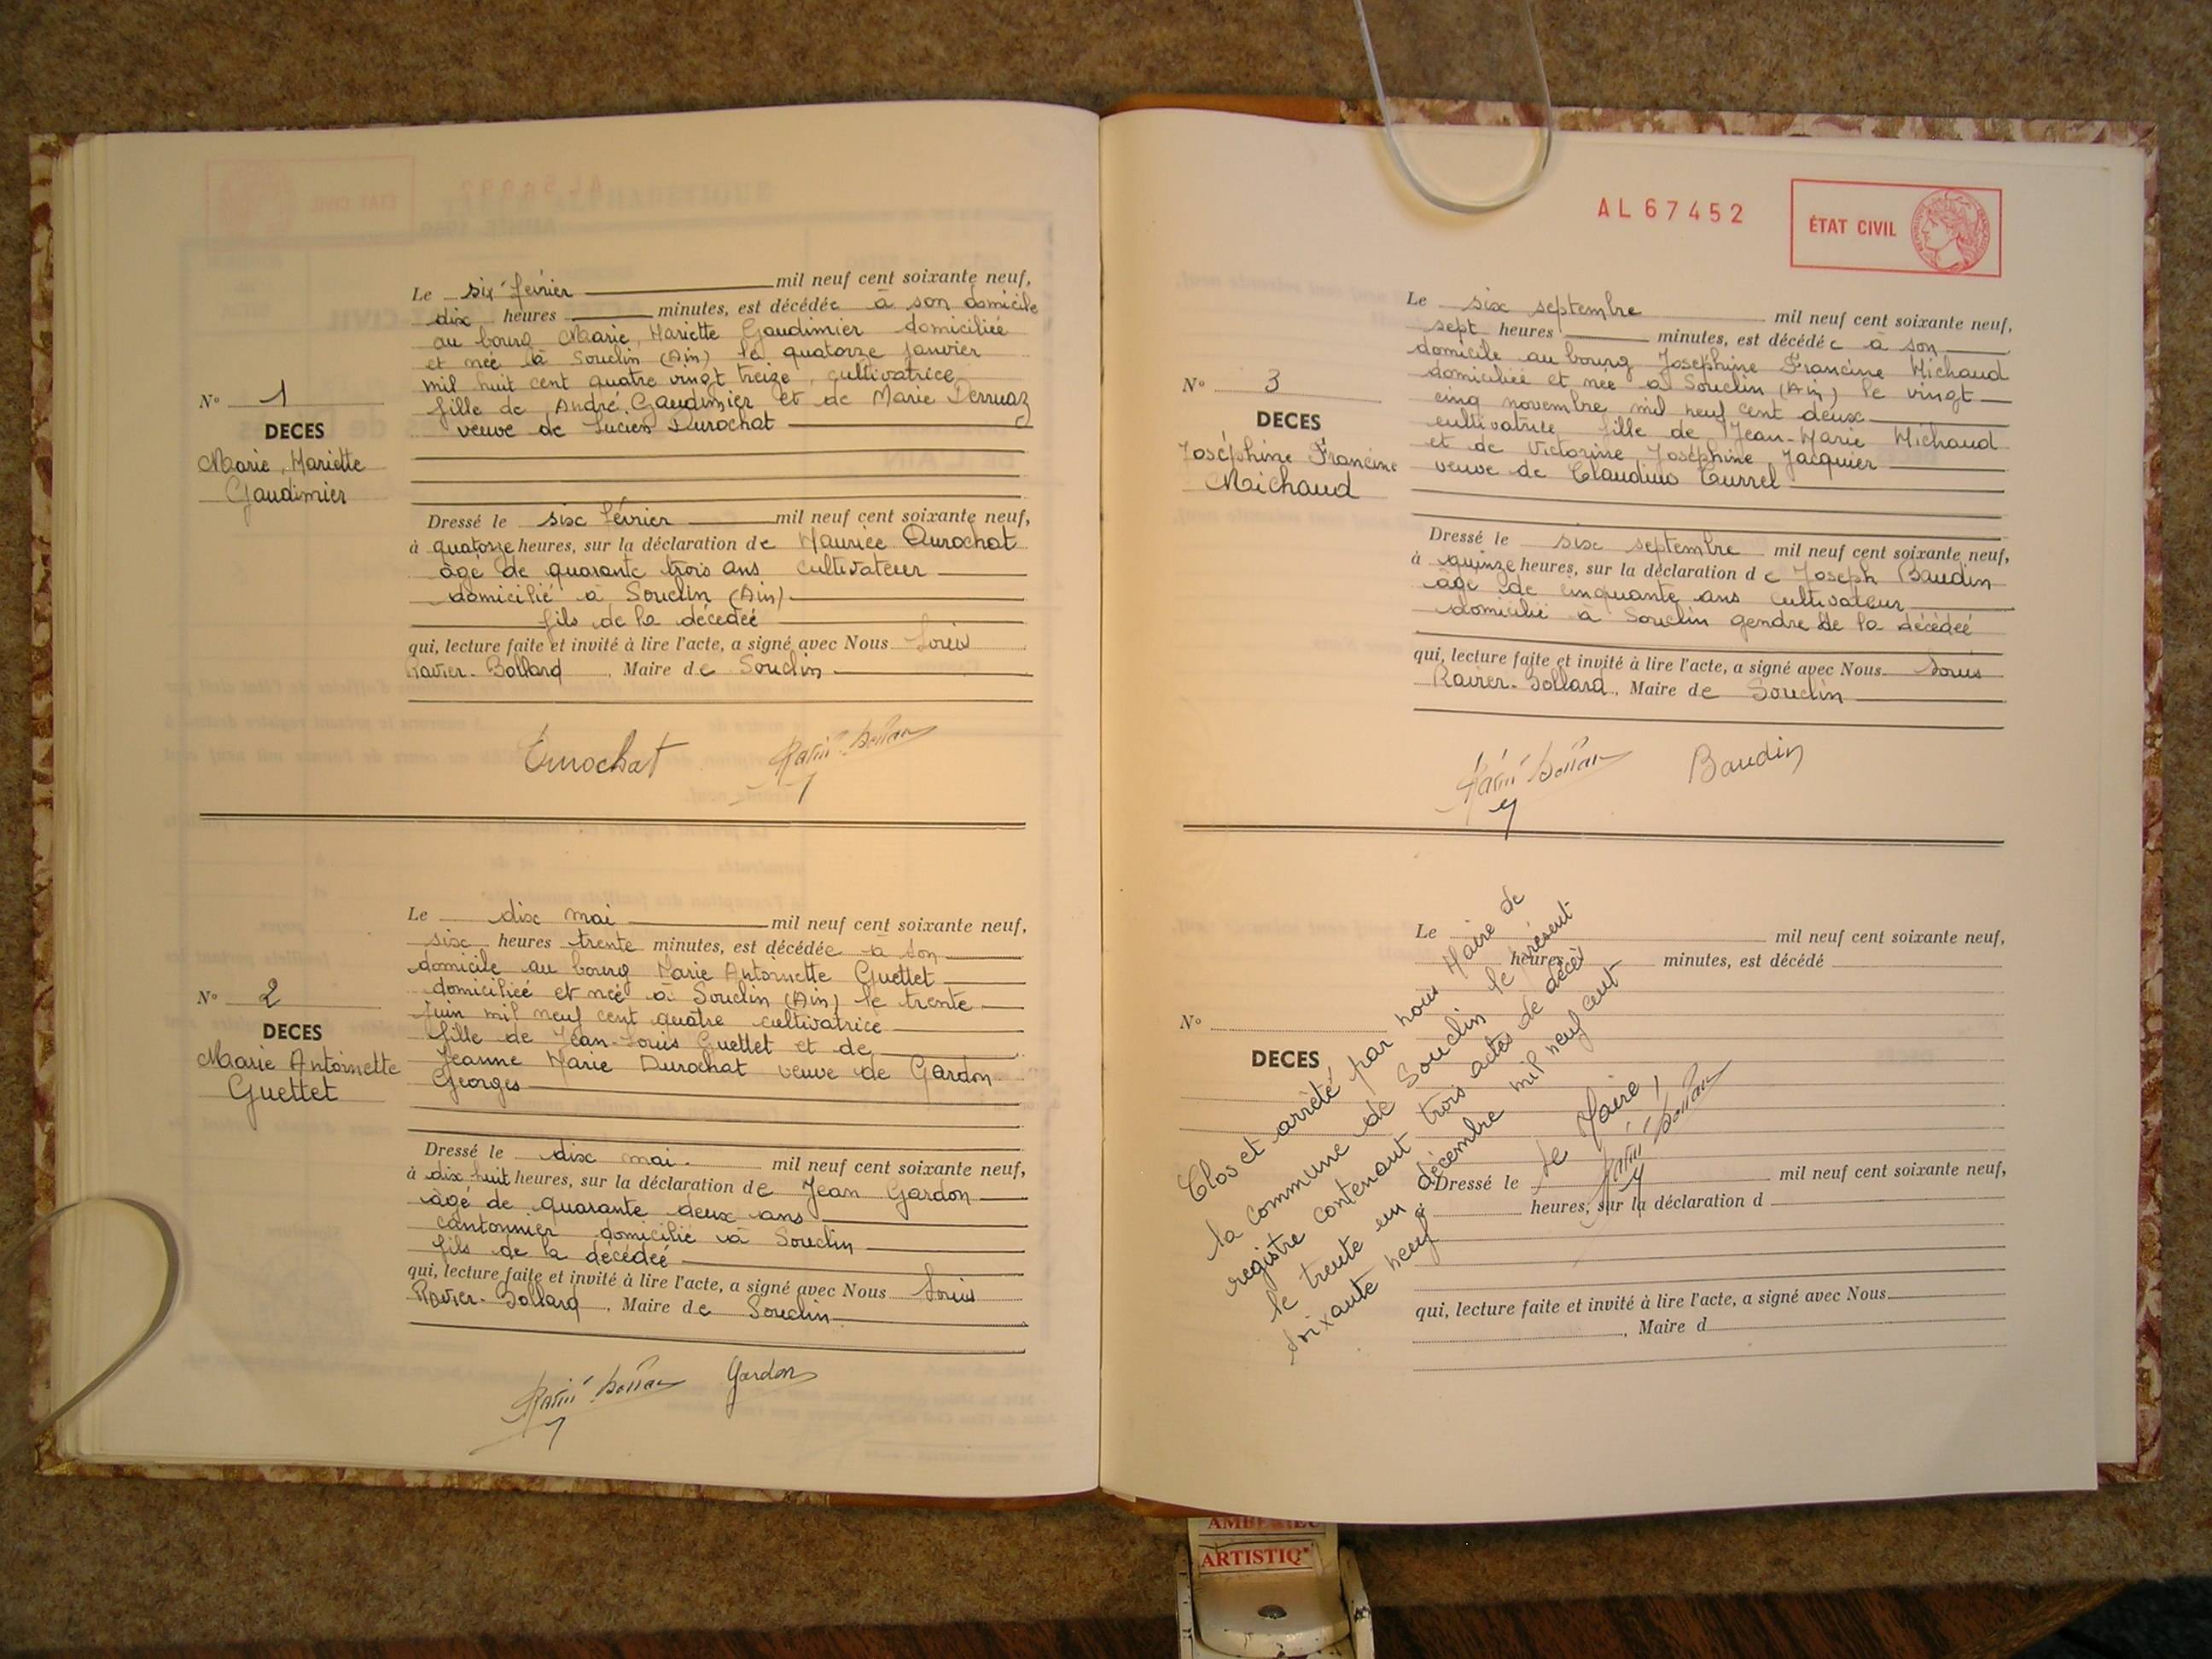 Le six février mil neuf cent soixante neuf,
dix heures minutes, est décédée à son domicile
au bourg Marie, Mariette Gaudimier domiciliée
et née à Souclin (Ain) le quatorze janvier
mil huit cent quatre vingt treize, cultivatrice
fille de André Gaudimier et de Marie Derruaz
veuve de Lucien Durochat
N° 1
DECES
Marie, Mariette
Gaudimier
Dressé le six février mil neuf cent soixante neuf,
à quatorze heures, sur la déclaration de Maurice Durochat
âgé de quarante trois ans cultivateur
domicilié à Souclin (Ain)
fils de la décédée
qui, lecture faite et invité à lire l'acte, a signé avec Nous Louis
Ravier-Bollard, Maire de Souclin
Durochat
Le dix mai mil neuf cent soixante neuf,
six heures trente minutes, est décédée à son
domicile au bourg Marie Antoinette Guettet
domiciliée et née à Souclin (Ain) le trente
juin mil neuf cent quatre cultivatrice
fille de Jean-Louis Guettet et de
Jeanne Marie Durochat veuve de Gardon
Georges
N° 2
DECES
Marie Antoinette
Guettet
Dressé le dix mai. mil neuf cent soixante neuf,
à dix huit heures, sur la déclaration de Jean Gardon
âgé de quarante deux ans
cantonnier domicilié à Souclin
fils de la décédée
qui, lecture faite et invité à lire l'acte, a signé avec Nous Louis
Ravier-Bollard, Maire de Souclin
Gardon
AL 67452
ÉTAT CIVIL
Le six septembre mil neuf cent soixante neuf,
sept heures minutes, est décédée à son
domicile au bourg Joséphine Francine Michaud
domiciliée et née à Souclin (Ain) le vingt
cinq novembre mil neuf cent deux
cultivatrice fille de Jean-Marie Michaud
et de Victorine, Joséphine, Jacquier
veuve de Claudius Curvel
N° 3
DECES
Joséphine Francine
Michaud
Dressé le six septembre mil neuf cent soixante neuf,
à quinze heures, sur la déclaration de Joseph Baudin
âgé de cinquante ans cultivateur
domicilié à Souclin gendre de la décédée
qui, lecture faite et invité à lire l'acte, a signé avec Nous Louis
Ravier-Bollard, Maire de Souclin
Baudin
Le mil neuf cent soixante neuf,
heures minutes, est décédé
N°
DECES
Clos et arrêté par nous Maire de
la commune de Souclin le présent
registre contenant trois actes de décès
le trente un décembre mil neuf cent
soixante neuf
Le Maire,
Dressé le mil neuf cent soixante neuf,
à heures, sur la déclaration d
qui, lecture faite et invité à lire l'acte, a signé avec Nous
, Maire d
ARTISTIQ